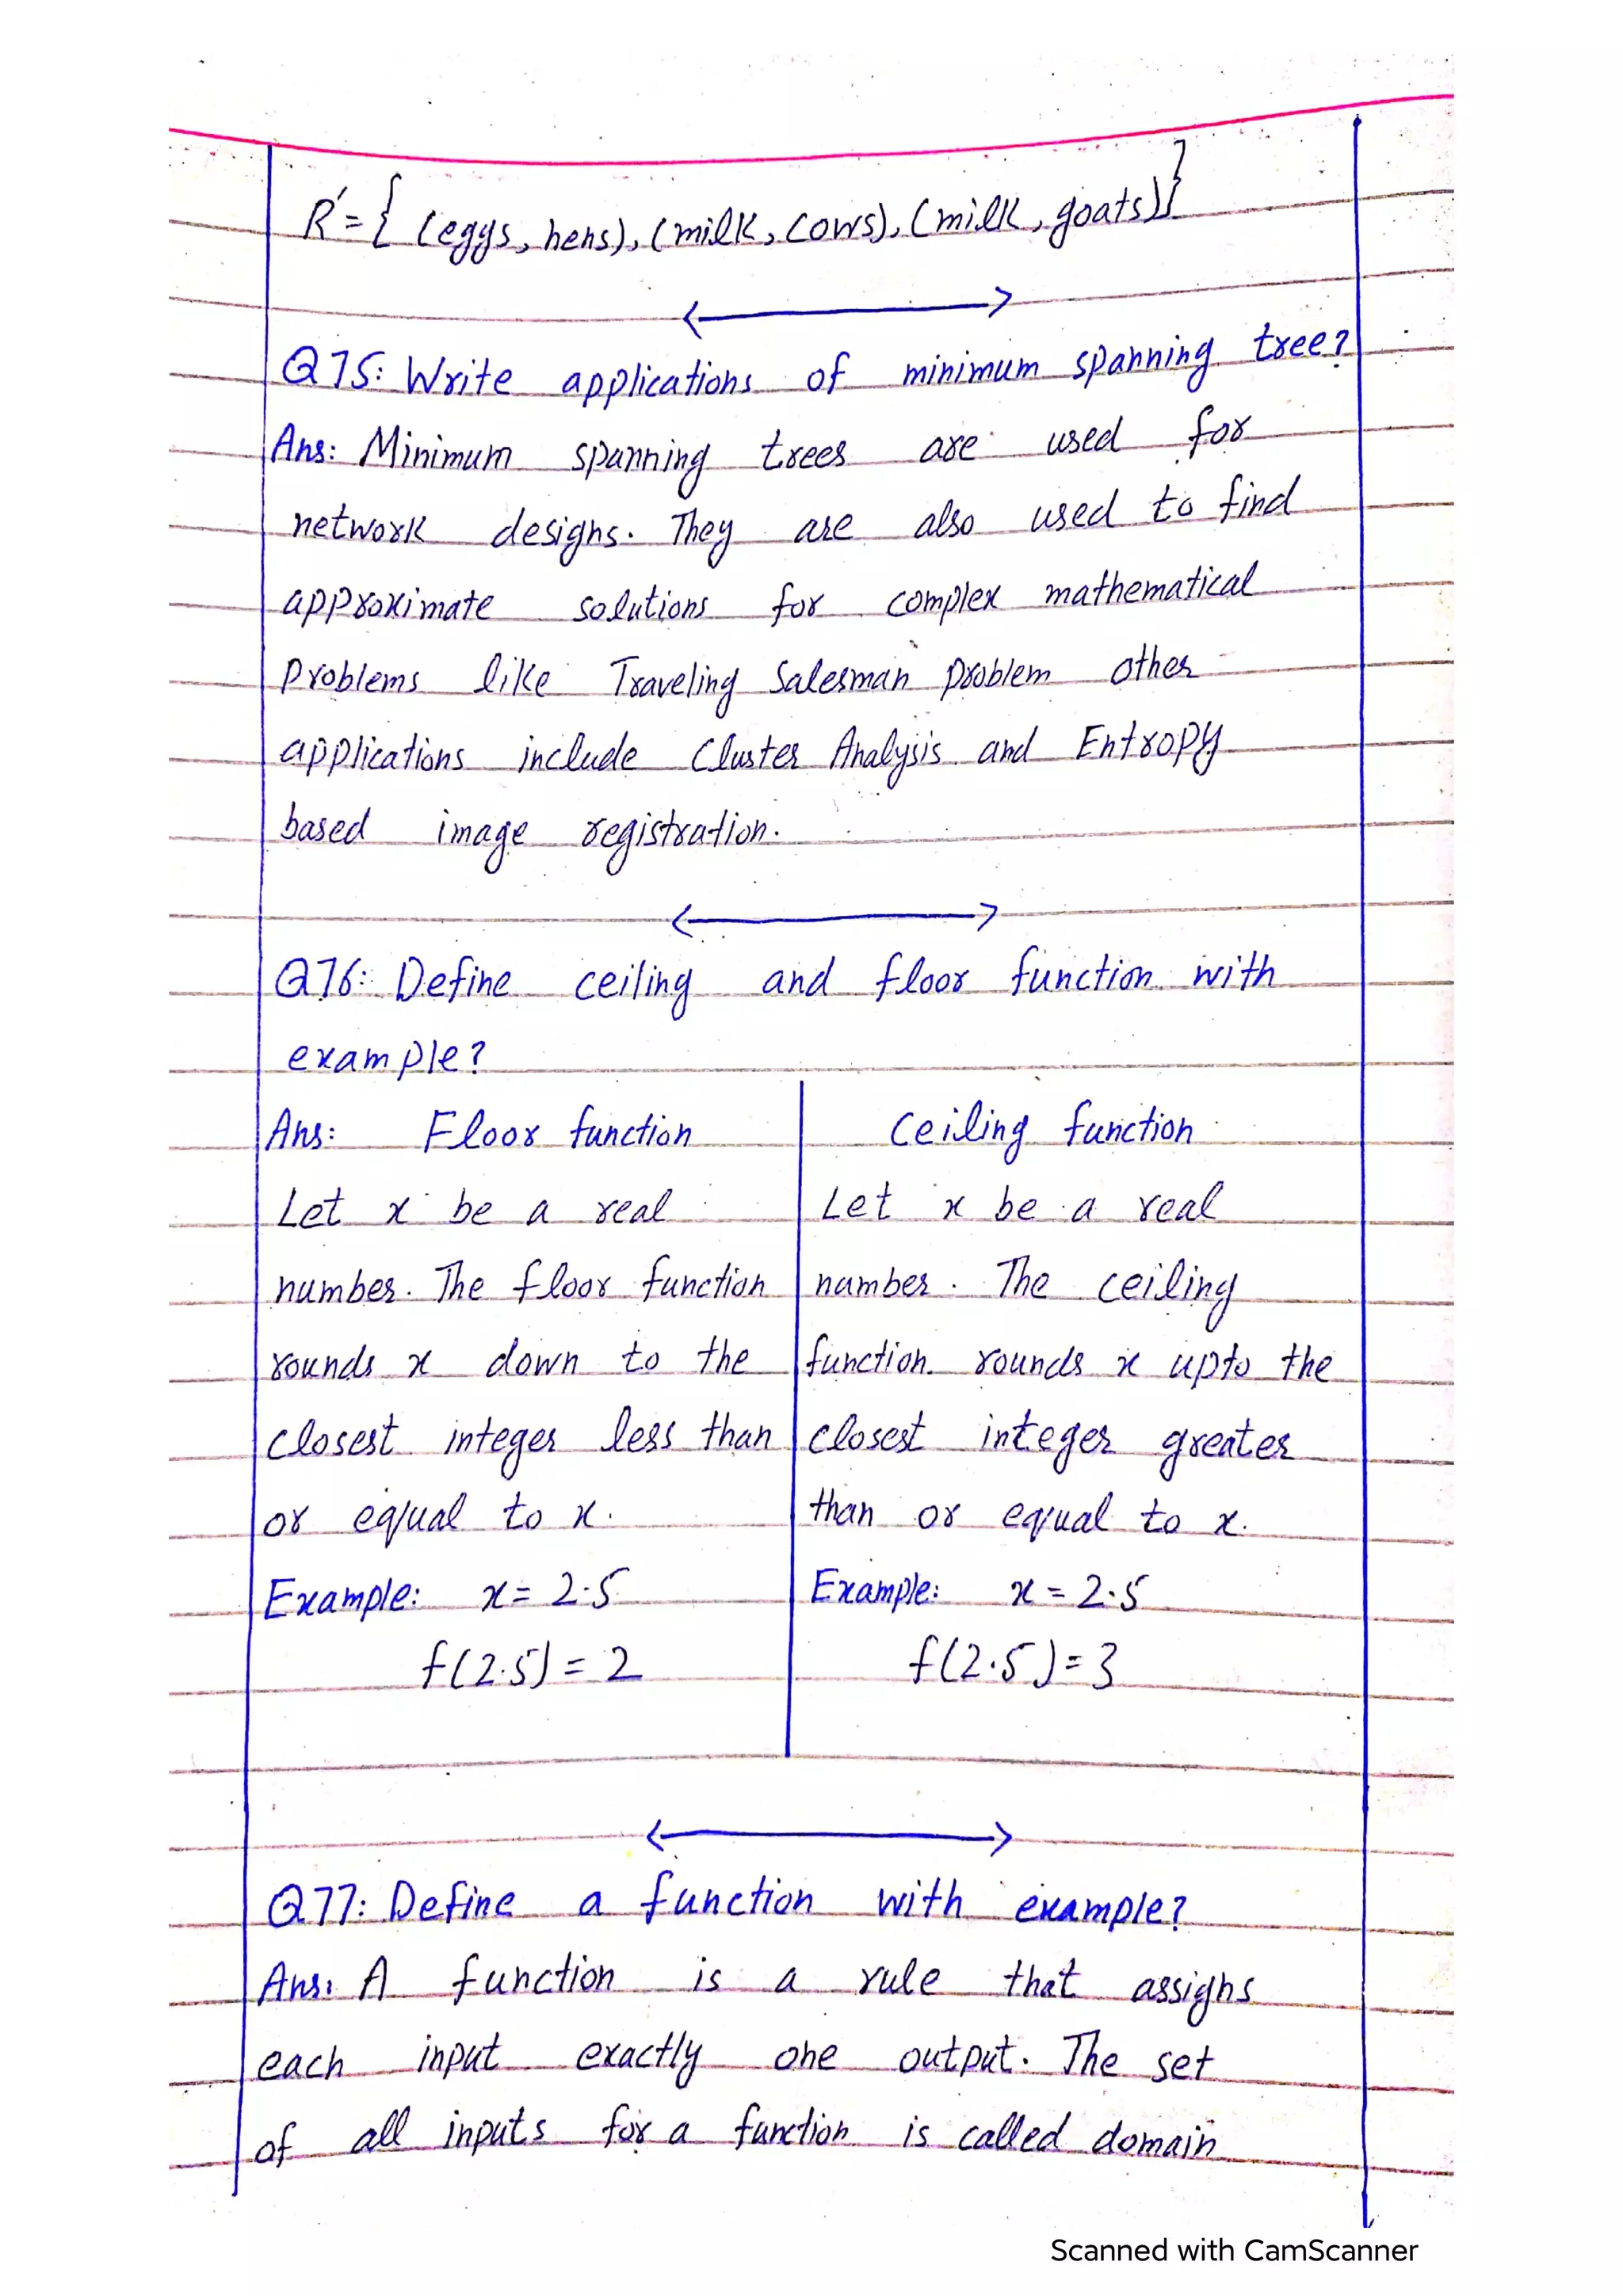 R'={ (eggs, hens), (milk, cows), (milk, goats)}
Q75: Write applications of minimum spanning tree?
Ans: Minimum spanning trees are used for
network designs. They are also used to find
approximate solutions for complex mathematical
Problems like Traveling Salesman problem other
applications include Cluster Analysis and Entropy
based image registration.
Q76: Define ceiling and floor function with
example?
Ans: Floor function
Let x be a real
number. The floor function
rounds x down to the
closest integer less than
or equal to x.
Example: x = 2.5
f(2.5) = 2
Ceiling function
Let x be a real
number. The ceiling
function rounds x upto the
closest integer greater
than or equal to x.
Example: x = 2.5
f(2.5) = 3
Q77: Define a function with example?
Ans: A function is a rule that assighs
each input exactly one output. The set
of all inputs for a function is called domain
Scanned with CamScanner